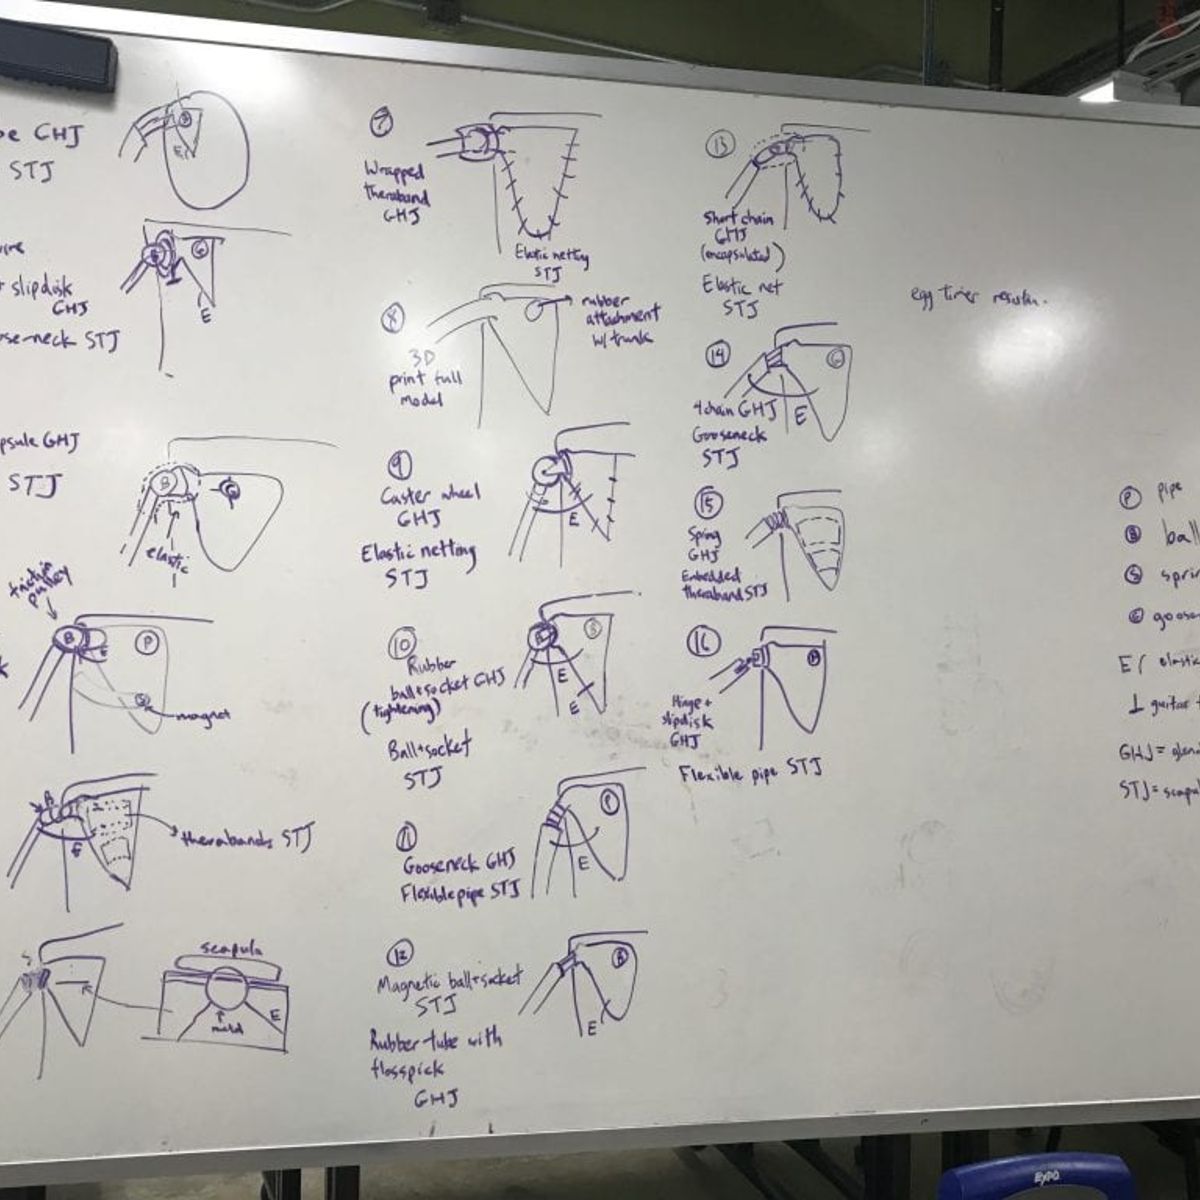 pe GHJ
STJ
E
slipdisk
GHJ
se-neck STJ
G
E
psule GHJ
STJ
B
G
elastic
friction
pulley
B
P
E
magnet
E
therabands STJ
S
scapula
mold
E
7
Wrapped
theraband
GHJ
Elastic netting
STJ
8
3D
print full
model
rubber
attachment
w/ trunk
9
Caster wheel
GHJ
Elastic netting
STJ
E
10
Rubber
ball+socket GHJ
(tightening)
Ball+socket
STJ
B
E
E
11
Gooseneck GHJ
Flexible pipe STJ
P
E
12
Magnetic ball+socket
STJ
Rubber tube with
flosspick
GHJ
B
E
13
Short chain
GHJ
(encapsulated)
Elastic net
STJ
14
4 chain GHJ
Gooseneck
STJ
G
E
15
Spring
GHJ
Embedded
theraband STJ
16
Hinge +
slipdisk
GHJ
Flexible pipe STJ
egg timer
P pipe
B ball
S sprin
G goose
E elastic
guitar
GHJ = glen
STJ = scapul
EXPO